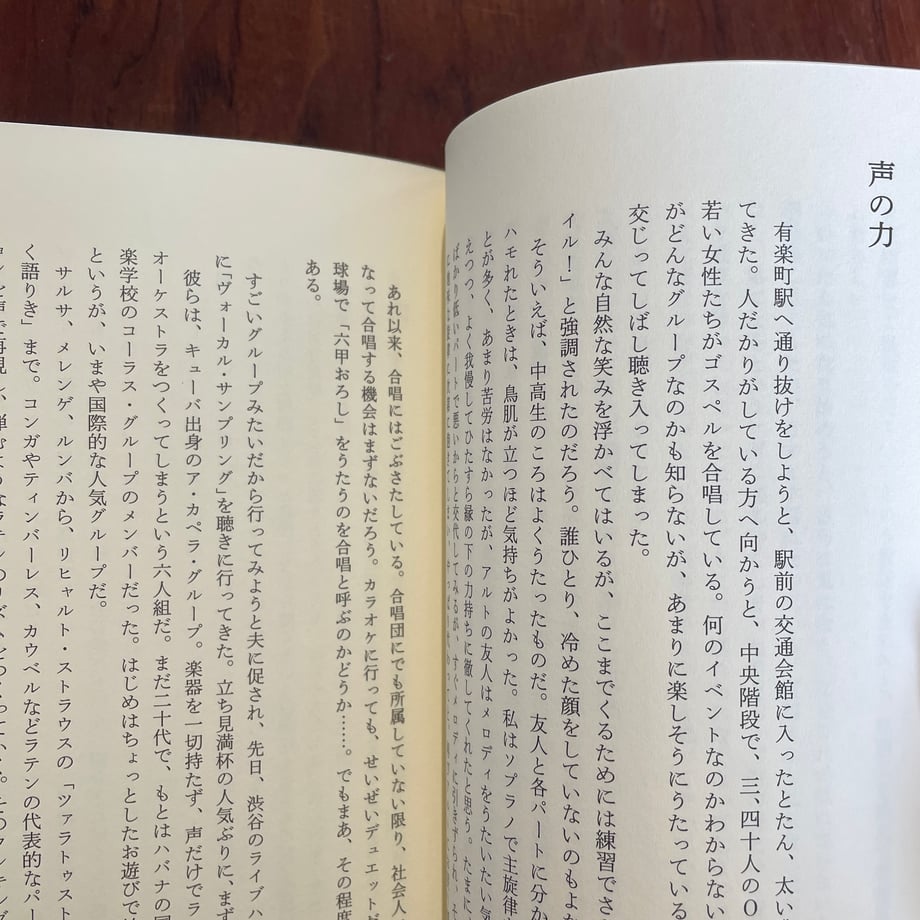 声の力
有楽町駅へ通り抜けをしようと、駅前の交通会館に入ったとたん、太い
てきた。人だかりがしている方へ向かうと、中央階段で、三、四十人のO
若い女性たちがゴスペルを合唱している。何のイベントなのかわからない
がどんなグループなのかも知らないが、あまりに楽しそうにうたっている
交じってしばし聴き入ってしまった。
みんな自然な笑みを浮かべてはいるが、ここまでくるためには練習でさ
イル!」と強調されたのだろう。誰ひとり、冷めた顔をしていないのもよ
そういえば、中高生のころはよくうたったものだ。友人と各パートに分か
ハモれたときは、鳥肌が立つほど気持ちがよかった。私はソプラノで主旋律
とが多く、あまり苦労はなかったが、アルトの友人はメロディをうたいたい気
えつつ、よく我慢してひたすら縁の下の力持ちに徹してくれたと思う。たまに
ばかり低いパートで悪いからと交代してみるが、すぐメロディに引きずられ、そ
あれ以来、合唱にはごぶさたしている。合唱団にでも所属していない限り、社会人
なって合唱する機会はまずないだろう。カラオケに行っても、せいぜいデュエット
球場で「六甲おろし」をうたうのを合唱と呼ぶのかどうか……。でもまあ、その程度
ある。
すごいグループみたいだから行ってみようと夫に促され、先日、渋谷のライブハ
に「ヴォーカル・サンプリング」を聴きに行ってきた。立ち見満杯の人気ぶりに、まず
彼らは、キューバ出身のア・カペラ・グループ。楽器を一切持たず、声だけでラ
オーケストラをつくってしまうという六人組だ。まだ二十代で、もとはハバナの国
楽学校のコーラス・グループのメンバーだった。はじめはちょっとしたお遊びで
というが、いまや国際的な人気グループだ。
サルサ、メレンゲ、ルンバから、リヒャルト・ストラウスの「ツァラトゥスト
く語りき」まで。コンガやティンバーレス、カウベルなどラテンの代表的なパー